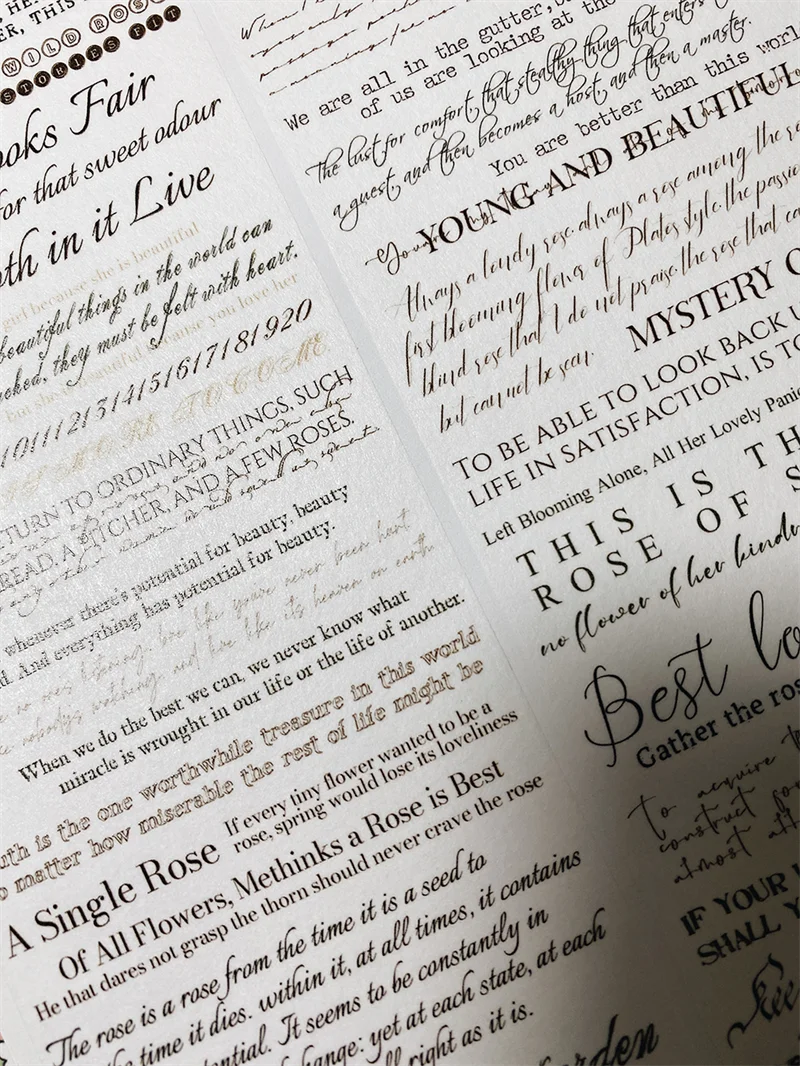 WILD ROSE
STORIES FIT
ooks Fair
for that sweet odour
oth in it Live
girl because she is beautiful
beautiful things in the world can
they must be felt with heart.
but she is beautiful because you love her
1011121314151617181920
MORE TO COME
ETURN TO ORDINARY THINGS, SUCH
READ, A PITCHER, AND A FEW ROSES.
whenever there's potential for beauty, beauty
d. And everything has potential for beauty.
love like you've never been hurt
and live like it's heaven on earth
When we do the best we can, we never know what
miracle is wrought in our life or the life of another.
uth is the one worthwhile treasure in this world
o matter how miserable the rest of life might be
A Single Rose
If every tiny flower wanted to be a
rose, spring would lose its loveliness
Of All Flowers, Methinks a Rose is Best
He that dares not grasp the thorn should never crave the rose
The rose is a rose from the time it is a seed to
the time it dies. within it, at all times, it contains
ential. It seems to be constantly in
hange: yet at each state, at each
ll right as it is.
We are all in the gutter, but
of us are looking at the
The lust for comfort, that stealthy thing that enters
a guest, and then becomes a host, and then a master.
You are better than this world
YOUNG AND BEAUTIFUL
Always a lovely rose always a rose among the
first blooming flower of Plato's style. the
blind rose that I do not praise. the rose that
but cannot be seen.
MYSTERY O
TO BE ABLE TO LOOK BACK U
LIFE IN SATISFACTION, IS TO
Left Blooming Alone, All Her Lovely
THIS IS TH
ROSE OF S
no flower of her kindr
Best lo
Gather the ros
To acquire
construct
almost
IF YOUR
SHALL Y
rden